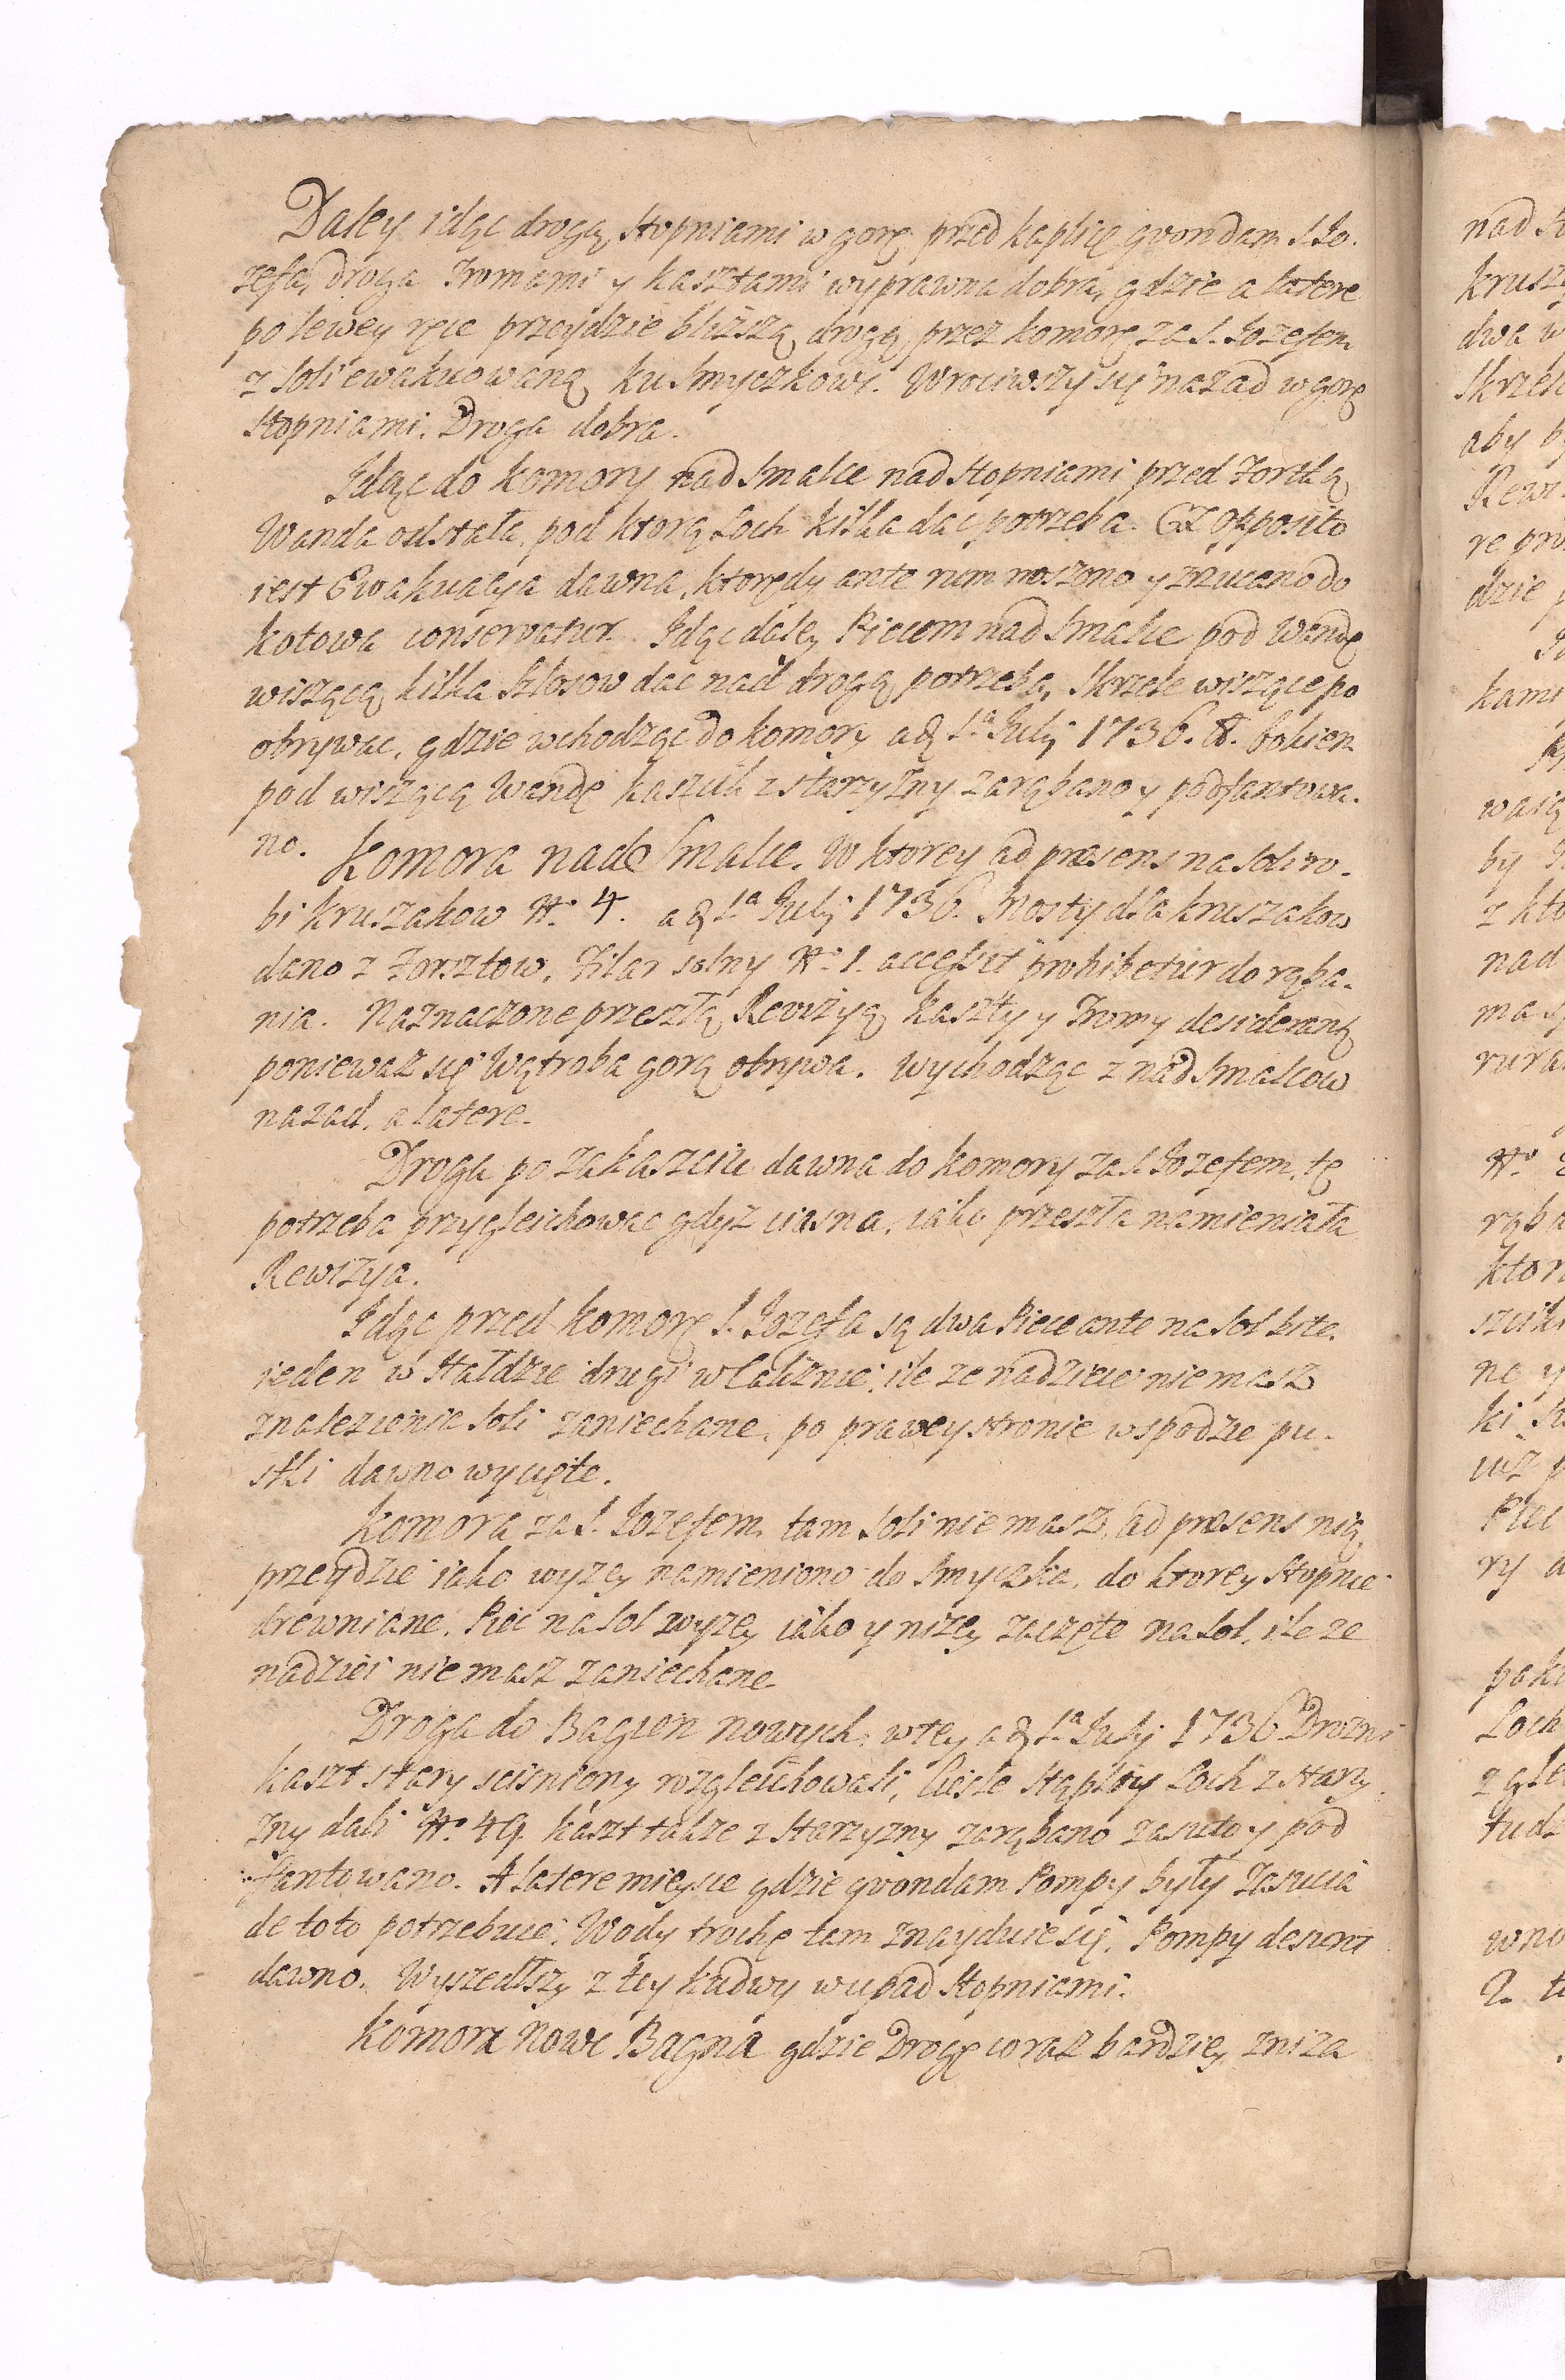 Daley idąc drogą stopniami w gorę przed kaplicę qvondam S. Jo-
zefa, droga Tromami y kasztami wyprawna dobra, gdzie a latere
po lewey ręce przeydzie bliższą drogą przez komorę za S. Jozefem
z soli ewakuowaną ku Smyczkowi. Wrociwszy się nazad w gorę
stopniami. Droga dobra.
Idąc do komory nad Smalce nad stopniami przed Fortką
Wanda odstała, pod ktorą Loch kilka dać potrzeba. Ex opposito
iest Ewakuacya dawna, ktorędy ante rum noszono y zrzucano do
kotowa conservatur. Idąc daley Piecem nad Smalce pod Wandę
wiszącą kilka Szlosow dac nad drogą potrzeba, Skrzele wiszące po
obrywac, gdzie wchodząc do komory a d. 1a July 1736. bokiem
pod wiszącą Wandę kaszcik z starzyzny zarąbano y podfantowa-
no. Komora nade Smalce. W ktorey ad præsens na soli ro-
bi kruszakow No. 4. a d. 1a July 1736. Mosty dla kruszakow
dano z Forsztow. Filar solny No. 1. accessit prohibetur do rąba-
nia. Naznaczone przeszłą Rewizyą kaszty y Tromy desiderantur
poniewaz się Wątroba gorą obrywa. Wychodząc z nad Smalcow
nazad, a latere.
Droga po zakaszciu dawna do komory za S. Jozefem, tę
potrzeba przygleichowac gdyż ciasna, iako przeszła namieniała
Rewizya.
Idąc przed komorę S. Jozefa są dwa Piece ante na sol bite,
ieden w Hałdzie drugi w Caliznie, ile ze nadzieie niemasz
znalezienia soli zaniechane, po prawey stronie w spodzie pu-
stki dawno wycięte.
Komora za S. Jozefem, tam soli nie masz, ad præsens nią
przeydzie iako wyzey namieniono do Smyczka, do ktorey stopnie
drewniane. Piec na sol wyzey iako y nizey zaczęte na sol, ile ze
nadziei nie masz zaniechane.
Droga do Bagien nowych, w tey a d. 1a July 1736 Drozni
kaszt stary scisniony rozgleichowali, Cieśle Stęplrzy Loch z starzy
zny dali No. 49. kaszt takze z starzyzny zarąbano zasuto y pod
fantowano. A latere mieysce gdzie qvondam Pompy były zasucia
de toto potrzebuie. Wody trochę tam znayduie się. Pompy desunt
dawno. Wyszedłszy z tey kudwy w upad stopniami.
Komora Nowe Bagna gdzie Drogę coraz bardziey zniza
nad
krusz
dwa w
Skrzel
aby
Rewi
re pro
dzie
kami
by
z kto
nad
rura
No.
rąba
ktor
ki
Piec
ry
Loch
wno